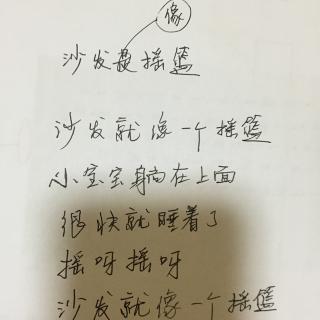 像
沙发是摇篮
沙发就像一个摇篮
小宝宝躺在上面
很快就睡着了
摇呀摇呀
沙发就像一个摇篮